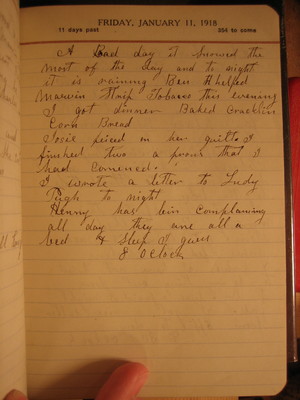 FRIDAY, JANUARY 11, 1918
11 days past 354 to come
A Bad day it Snowed the
most of the day and to night
it is raining Ben H helped
Marvin Strip Tobacco this evening
I got dinner Baked Cracklin
Corn Bread
Josie peiced on her quilts I
finished two a prons that I
had Comenced.
I wrote a letter to Judy
Pugh to night
Henry has bin complaining
all day they are all a
bed & Sleep I guess
8 OClock